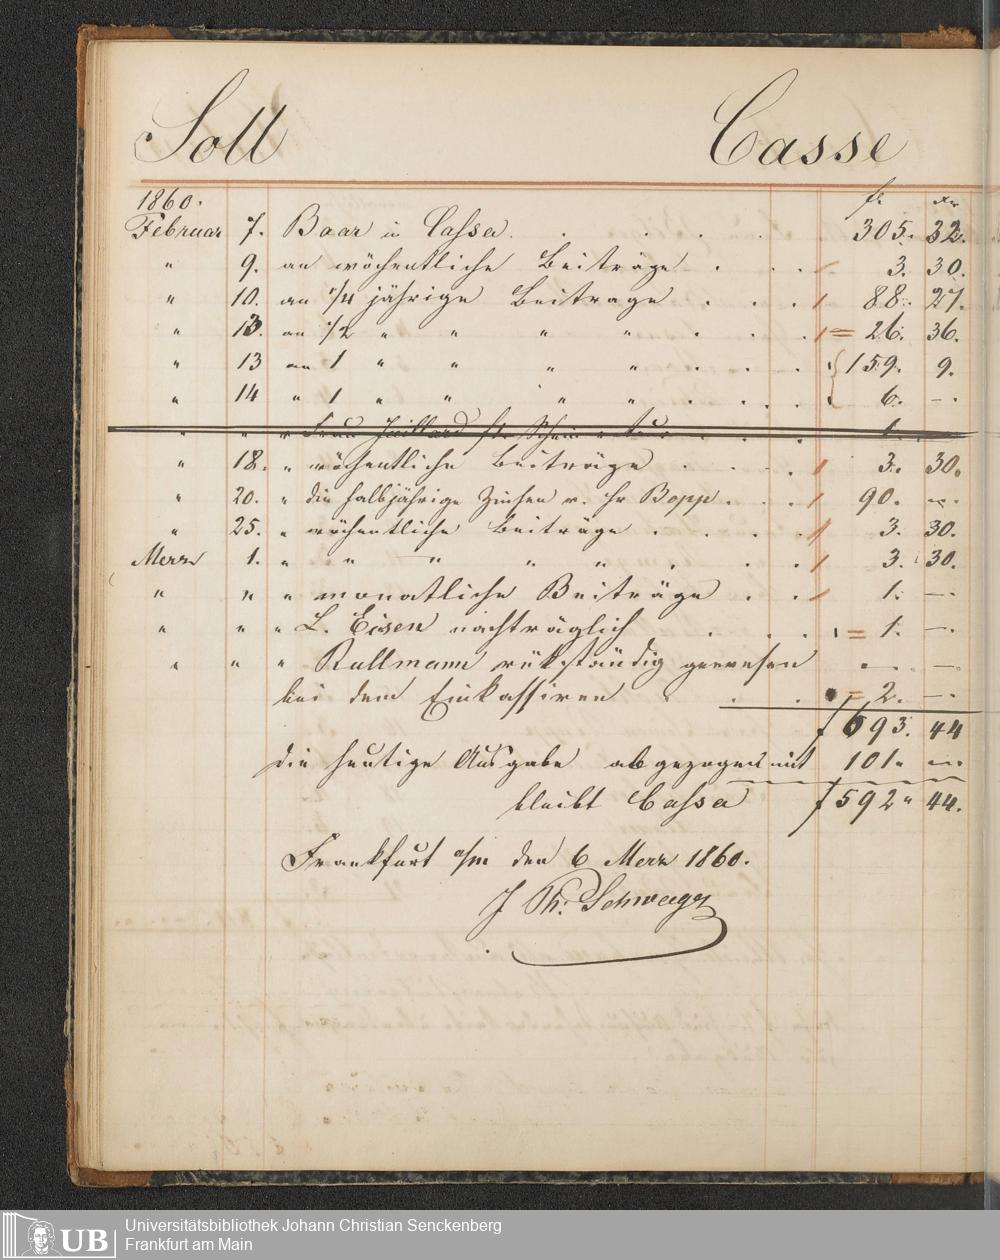 Soll Casse
1860. fr xr
Februar 7. Baar in Cassa. . . . . 305. 32.
" 9. an wöchentliche Beiträge . . . 3. 30.
" 10. an 1/4 jährige Beitrage . . . 88. 27.
" 13. an 1/2 " " " " . . . 26. 36.
" 13 an 1 " " " " . . . 159. 9.
" 14 " 1 " " " " . . . 6. - .
" " " Frau 1.
" 18. " wöchentliche Beiträge . . . 3. 30.
" 20. " die halbjährige Zinsen v. Hr Bopp . . . 90. - .
" 25. " wöchentliche Beiträge . . . 3. 30.
Merz 1. " " " " " . . . 3. 30.
" " " monatliche Beiträge . . 1. - .
" " " L. Eisen nachträglich . . . 1. - .
" " " Rullmann rükständig gewesen
bei dem Einkassiren . . . 2. - .
f 693. 44
die heutige Ausgabe abgezogen mit 101. -
bleibt Cassa f 592 " 44.
Frankfurt a/m den 6 Merz 1860.
J Th: Schweigz
UB Universitätsbibliothek Johann Christian Senckenberg
Frankfurt am Main